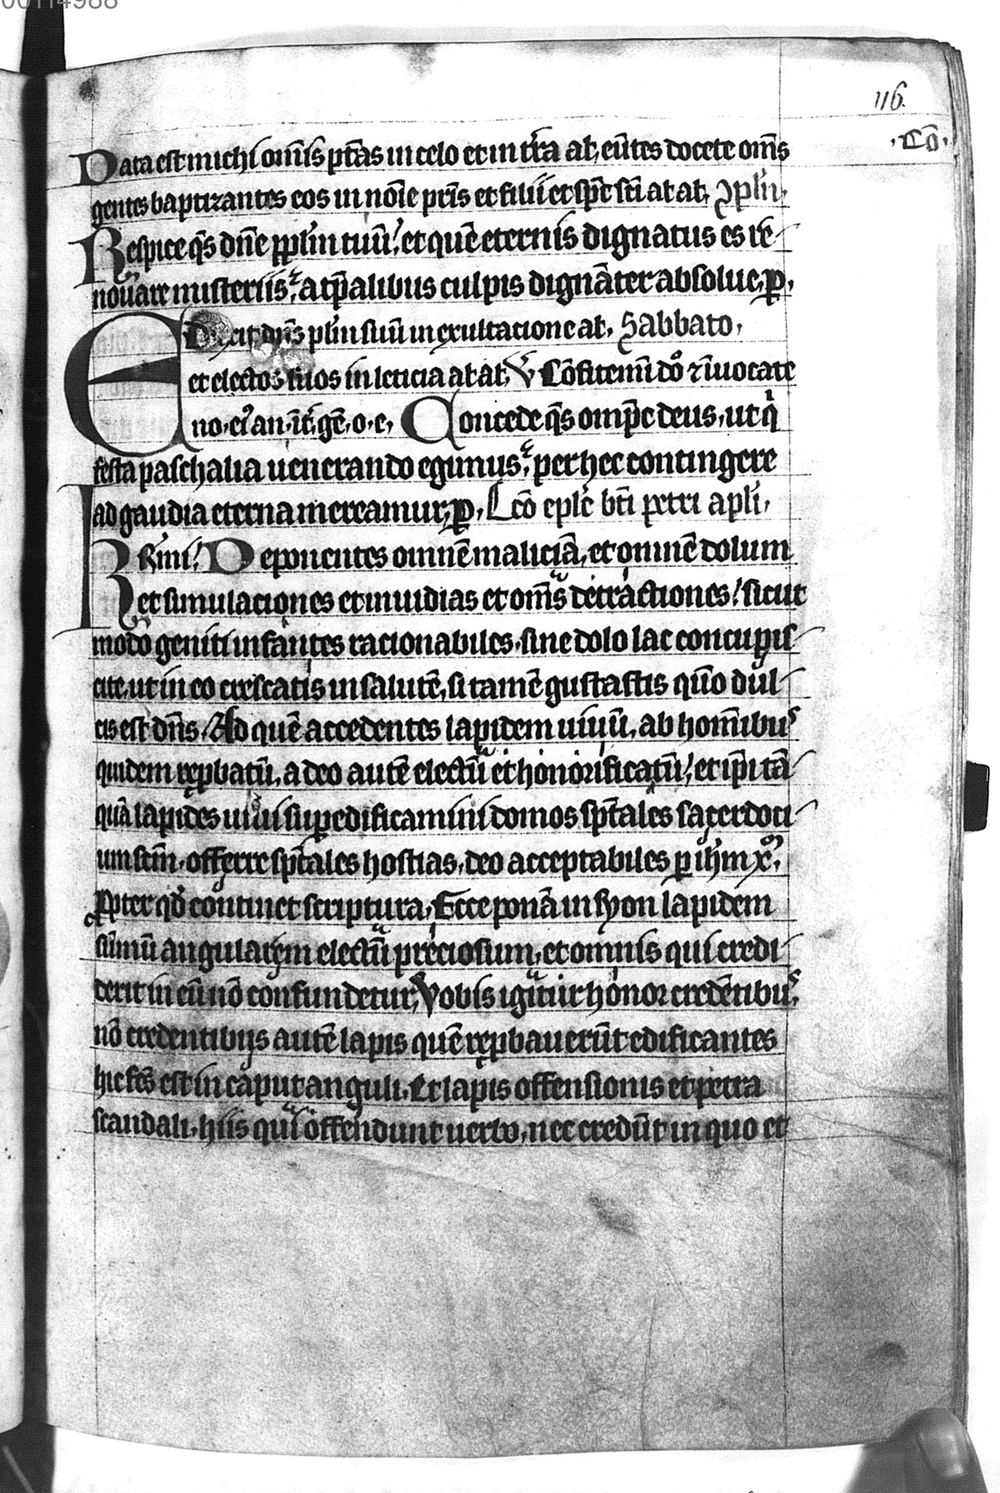 00114988
116.
.Co̅.
Data est michi om̅is pt̅as in celo et in tr̅a al̅, eu̅tes docete om̅s
gentes baptizantes eos in no̅i̅e pr̅is et filii et sp̅c sc̅i al̅ al̅,
Respice q̅s dn̅e pplm̅ tuu̅, et que̅ eternis dignatus es re
nouare misteriis, a tp̅alibus culpis digna̅ter absolue, p̱.
Eduxit dn̅s plm̅ suu̅ in exultacione al̅. Sabbato,
et electos suos in leticia al̅ al̅, V̅ Co̅fitemi̅ do̅ ⁊ i̅uocate
no. ei᷒ an. i̅t̅. ge̅. o. e, Concede q̅s omp̅c deus, ut q̅
festa paschalia uenerando egimus, per hec contingere
ad gaudia eterna mereamur, p̱. Lc̅o eplc̅ bt̅i petri apli̅,
Kr̅mi, Deponentes omne̅ malicia̅, et omne̅ dolum
et simulaciones et inuidias et om̅s detractiones, sicut
modo geniti infantes racionabiles, sine dolo lac concupis
cite, ut in eo crescatis in salute̅, si tame̅ gustastis quo̅ dul
cis est dn̅s, Ad que̅ accedentes lapidem uiuu̅, ab homi̅ibus
quidem rep̱batu̅, a deo aute̅ electu̅ et honorificatu̅, et ip̅i ta̅
qua̅ lapides uiui sup̱edificamini domos sp̅tales sacerdoci
um sc̅m̅, offerre sp̅tales hostias, deo acceptabiles p̱ ih̅m x̅,
Pp̱ter qd̅ continet scriptura, Ecce pona̅ in syon lapidem
su̅mu̅ angularem electu̅ preciosum, et omnis qui credi
derit in eu̅ no̅ confundetur, Vobis igitur honor crede̅tibus,
no̅ credentibus aute̅ lapis que̅ rep̱baueru̅t edificantes
hic fc̅s est in caput anguli, Et lapis offensionis et petra
scandali, hiis qui offendunt uerbo, nec credu̅t in quo et